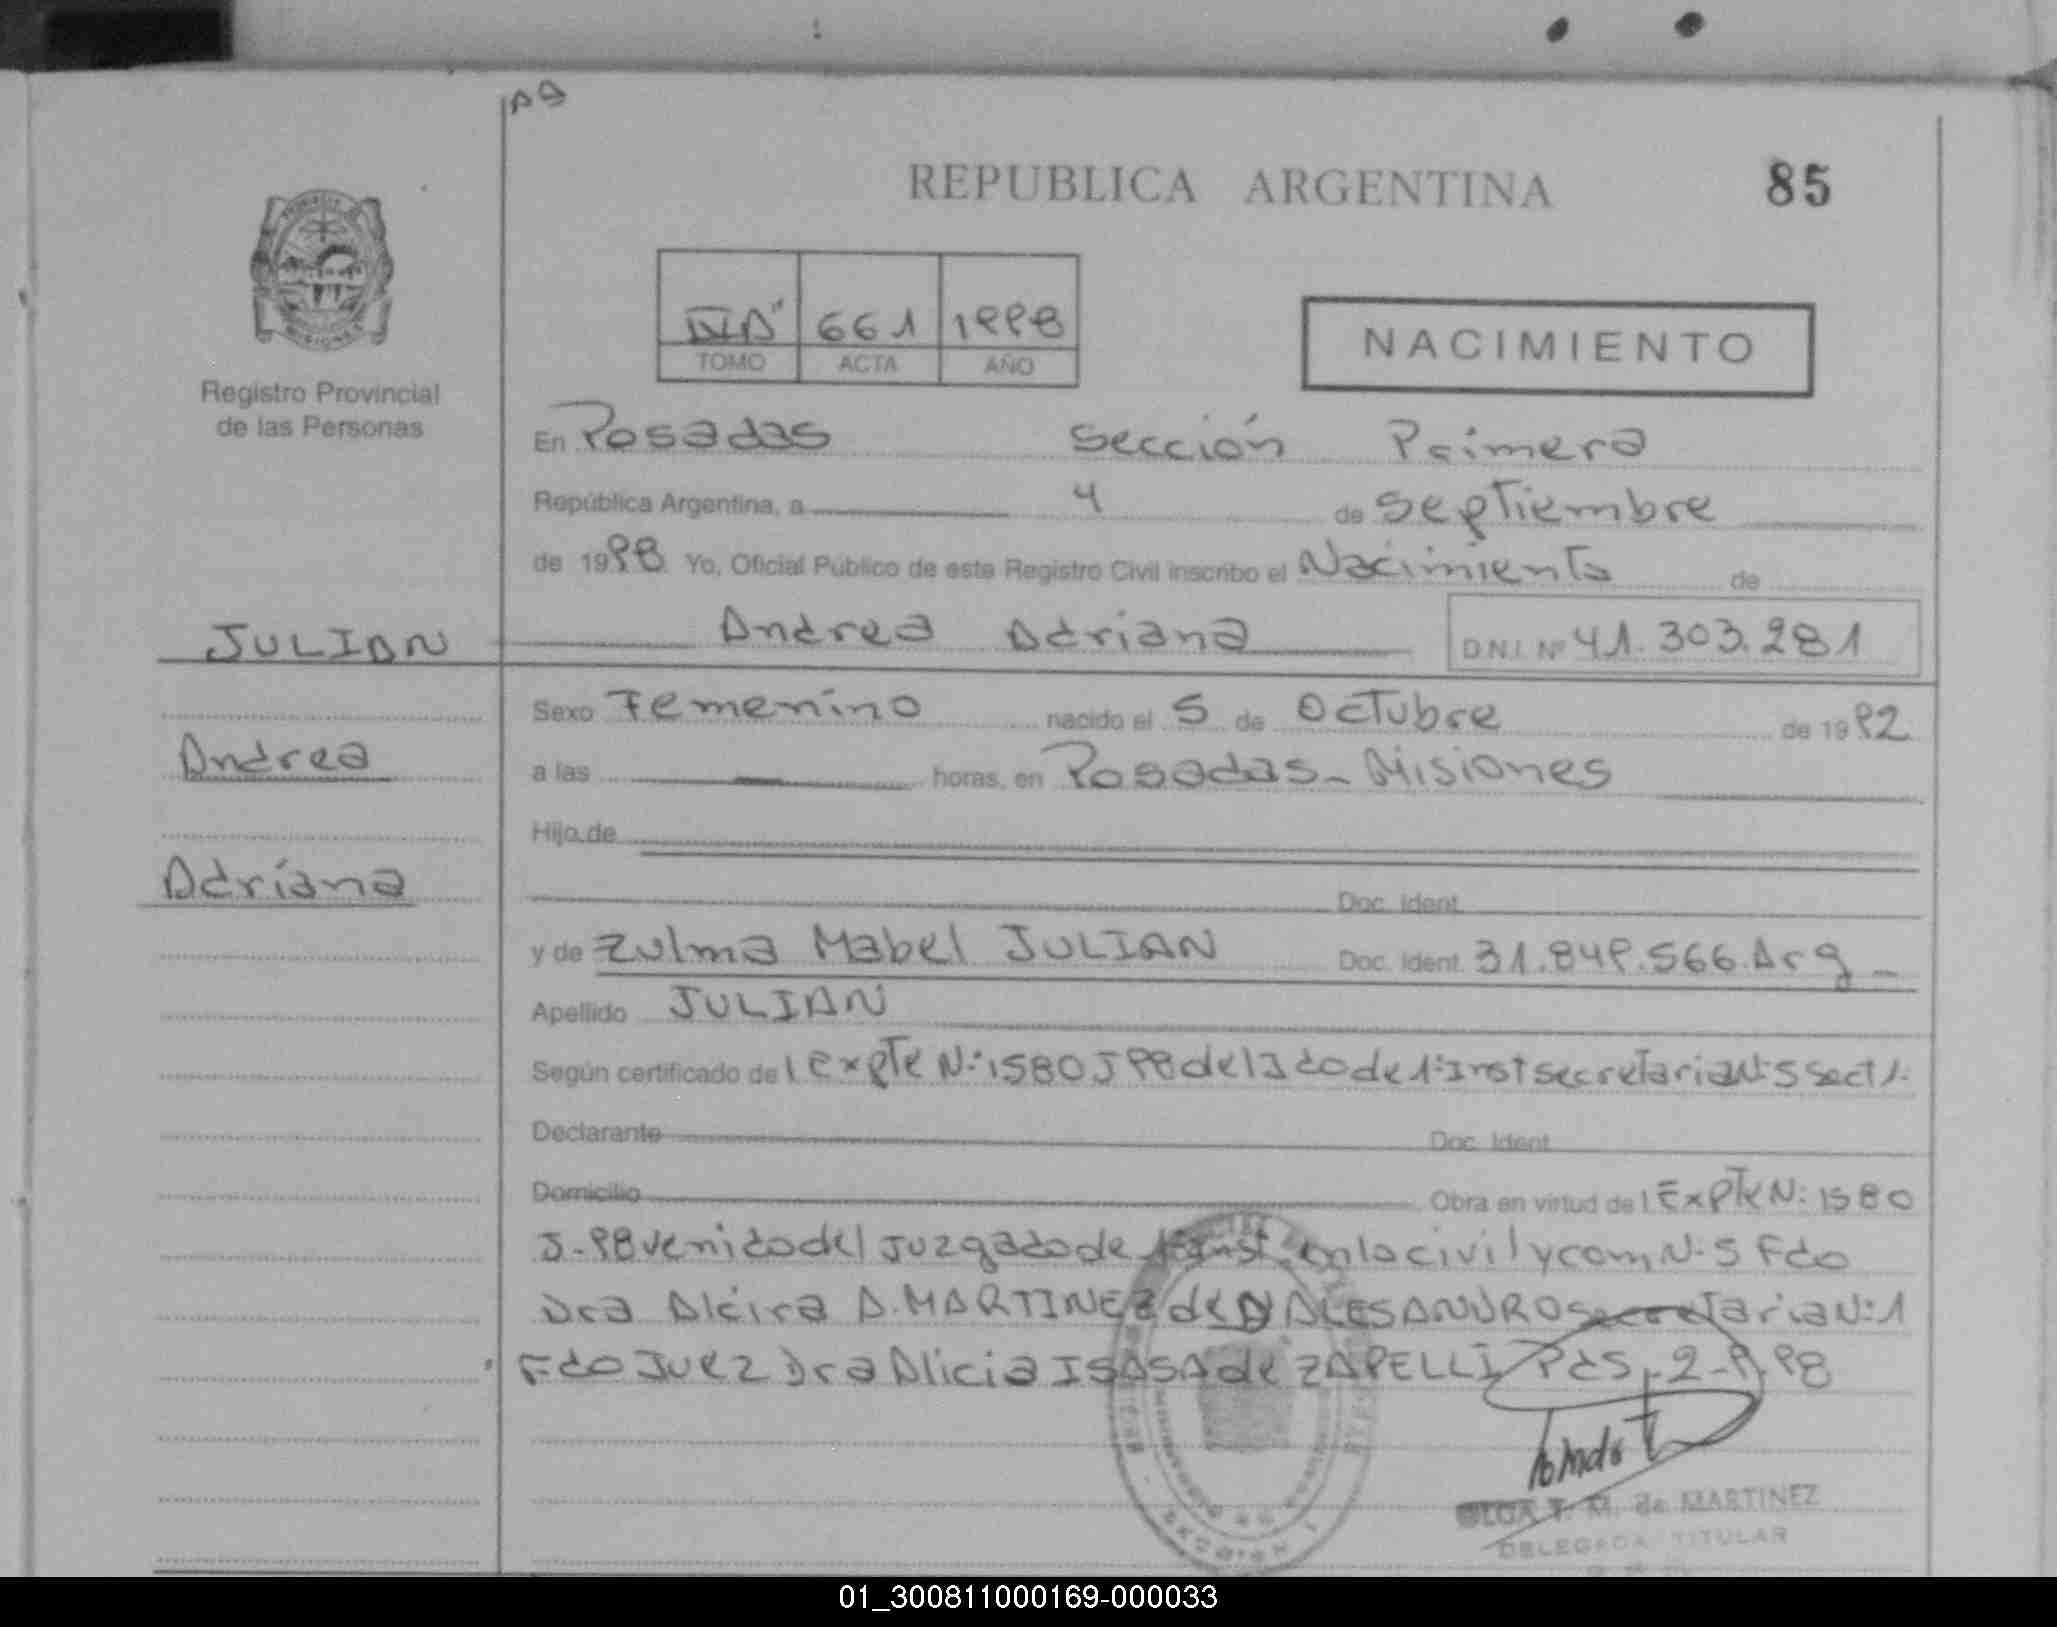 REPUBLICA ARGENTINA
85
661 1998
TOMO ACTA AÑO
NACIMIENTO
Registro Provincial
de las Personas
En Posadas Sección Primera
República Argentina, a 4 de septiembre
de 1998 Yo, Oficial Público de este Registro Civil inscribo el Nacimiento de
JULIAN
Andrea Adriana
D.N.I. Nº 41.303.281
Sexo Femenino nacido el 5 de Octubre de 1992
Andrea
a las horas, en Posadas - Misiones
Hijo de
Adriana
Doc. Ident.
y de Zulma Mabel JULIAN Doc. Ident. 31.849.566 Arg
Apellido JULIAN
Según certificado de l Expte N: 1580 J 98 del Jdo de 1: Inst secretaria N: 5 sect 1:
Declarante Doc. Ident.
Domicilio Obra en virtud de l Expte N: 1580
J-98 venido del Juzgado de en lo civil y com N: 5 Fdo
Dra Alcira A. MARTINEZ de secretaria N: 1
Fdo Juez Dra Alicia ISASA de ZAPELLI Pds, 2-9-98
OLGA T. M. de MARTINEZ
DELEGADA TITULAR
01_300811000169-000033